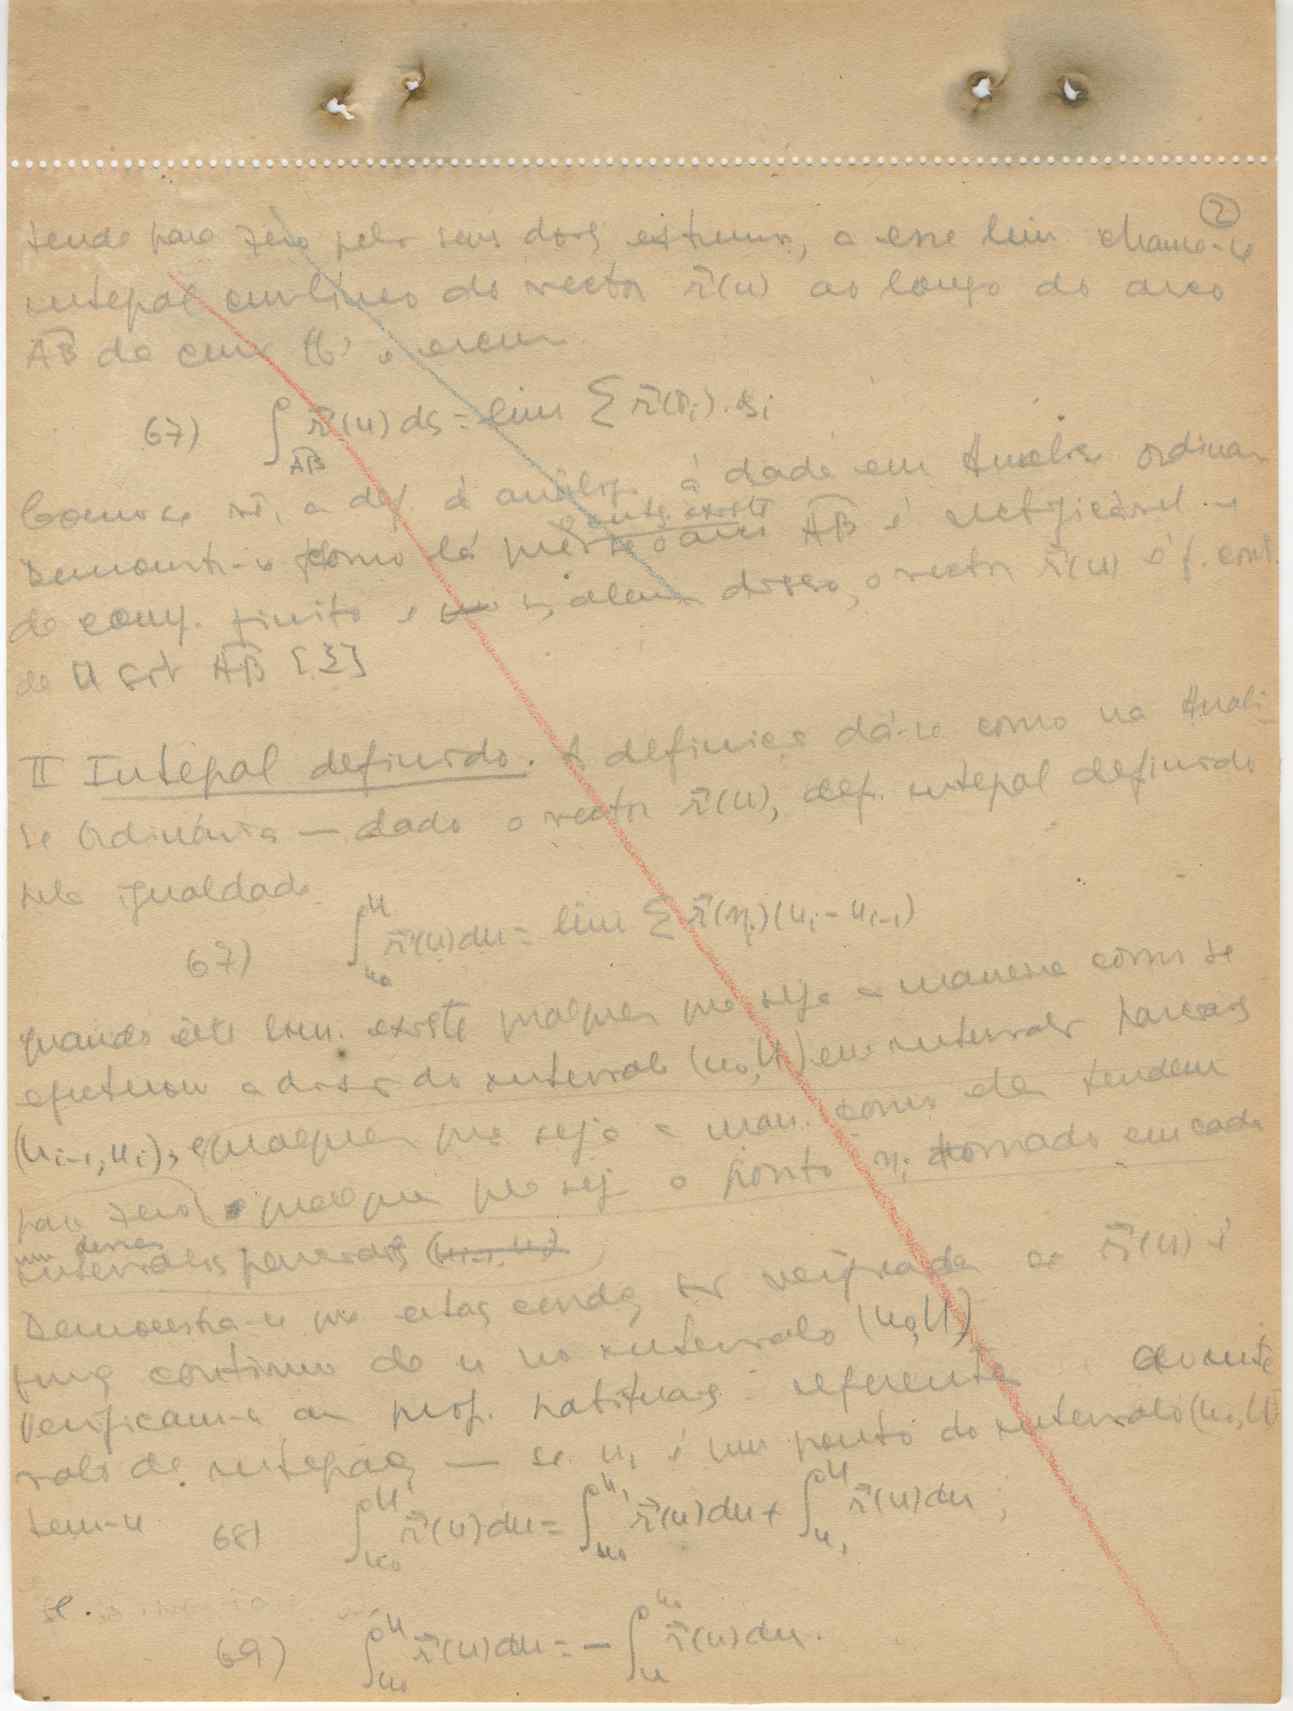 2
tende para zero pelos seus dois extremos, a esse lim chama-se
integral curvilíneo do vector r⃗(u) ao longo do arco
AB da curv e escreve
67) ∫AB r⃗(u) ds = lim Σ r⃗(σi). si
Como se vê, a def. é análoga à dada em Analise Ordinar
existe
Demonstr-se como lá que se o arco AB é rectificável e
de comp. finito e se, alem disso, o vector r⃗(u) é f. cont.
de u sob AB [Σ]
II Integral definido. A definição dá-se como na Anali
se Ordinária — dado o vector r⃗(u), def. integral definido
pela igualdade
67) ∫u₀^u r⃗(u)du = lim Σ r⃗(ηi)(ui - ui-1)
quando êste lim. existe qualquer que seja a maneira como se
efectuou a divisão do intervalo (u₀,u) em intervalos parciais
(ui-1, ui), e qualquer que seja a man. como eles tendem
para zero e qualquer que seja o ponto ηi tomado em cada
um desses
intervalos parciais (ui-1, ui)
Demonstra-se que estas cond. são verificadas se r⃗(u) é
função continua de u no intervalo (u₀,u)
Verificam-se as prop. habituais referentes ao inter
valo de integração — se u₁ é um ponto do intervalo (u₀,u)
tem-se
68) ∫u₀^u r⃗(u)du = ∫u₀^u₁ r⃗(u)du + ∫u₁^u r⃗(u)du ;
e.
69) ∫u₀^u r⃗(u)du = - ∫u^u₀ r⃗(u)du.